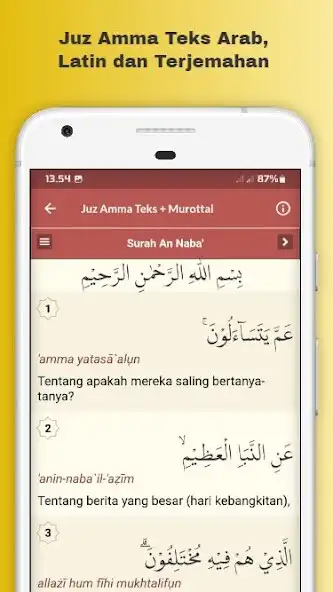 Juz Amma Teks Arab,
Latin dan Terjemahan
13.54 87%
Juz Amma Teks + Murottal
Surah An Naba'
بِسْمِ اللّٰهِ الرَّحْمٰنِ الرَّحِيْمِ
1
عَمَّ يَتَسَاۤءَلُوْنَۚ
'amma yatasā`alụn
Tentang apakah mereka saling bertanya-
tanya?
2
عَنِ النَّبَاِ الْعَظِيْمِۙ
'anin-naba`il-'aẓīm
Tentang berita yang besar (hari kebangkitan),
3
الَّذِيْ هُمْ فِيْهِ مُخْتَلِفُوْنَۗ
allażī hum fīhi mukhtalifụn